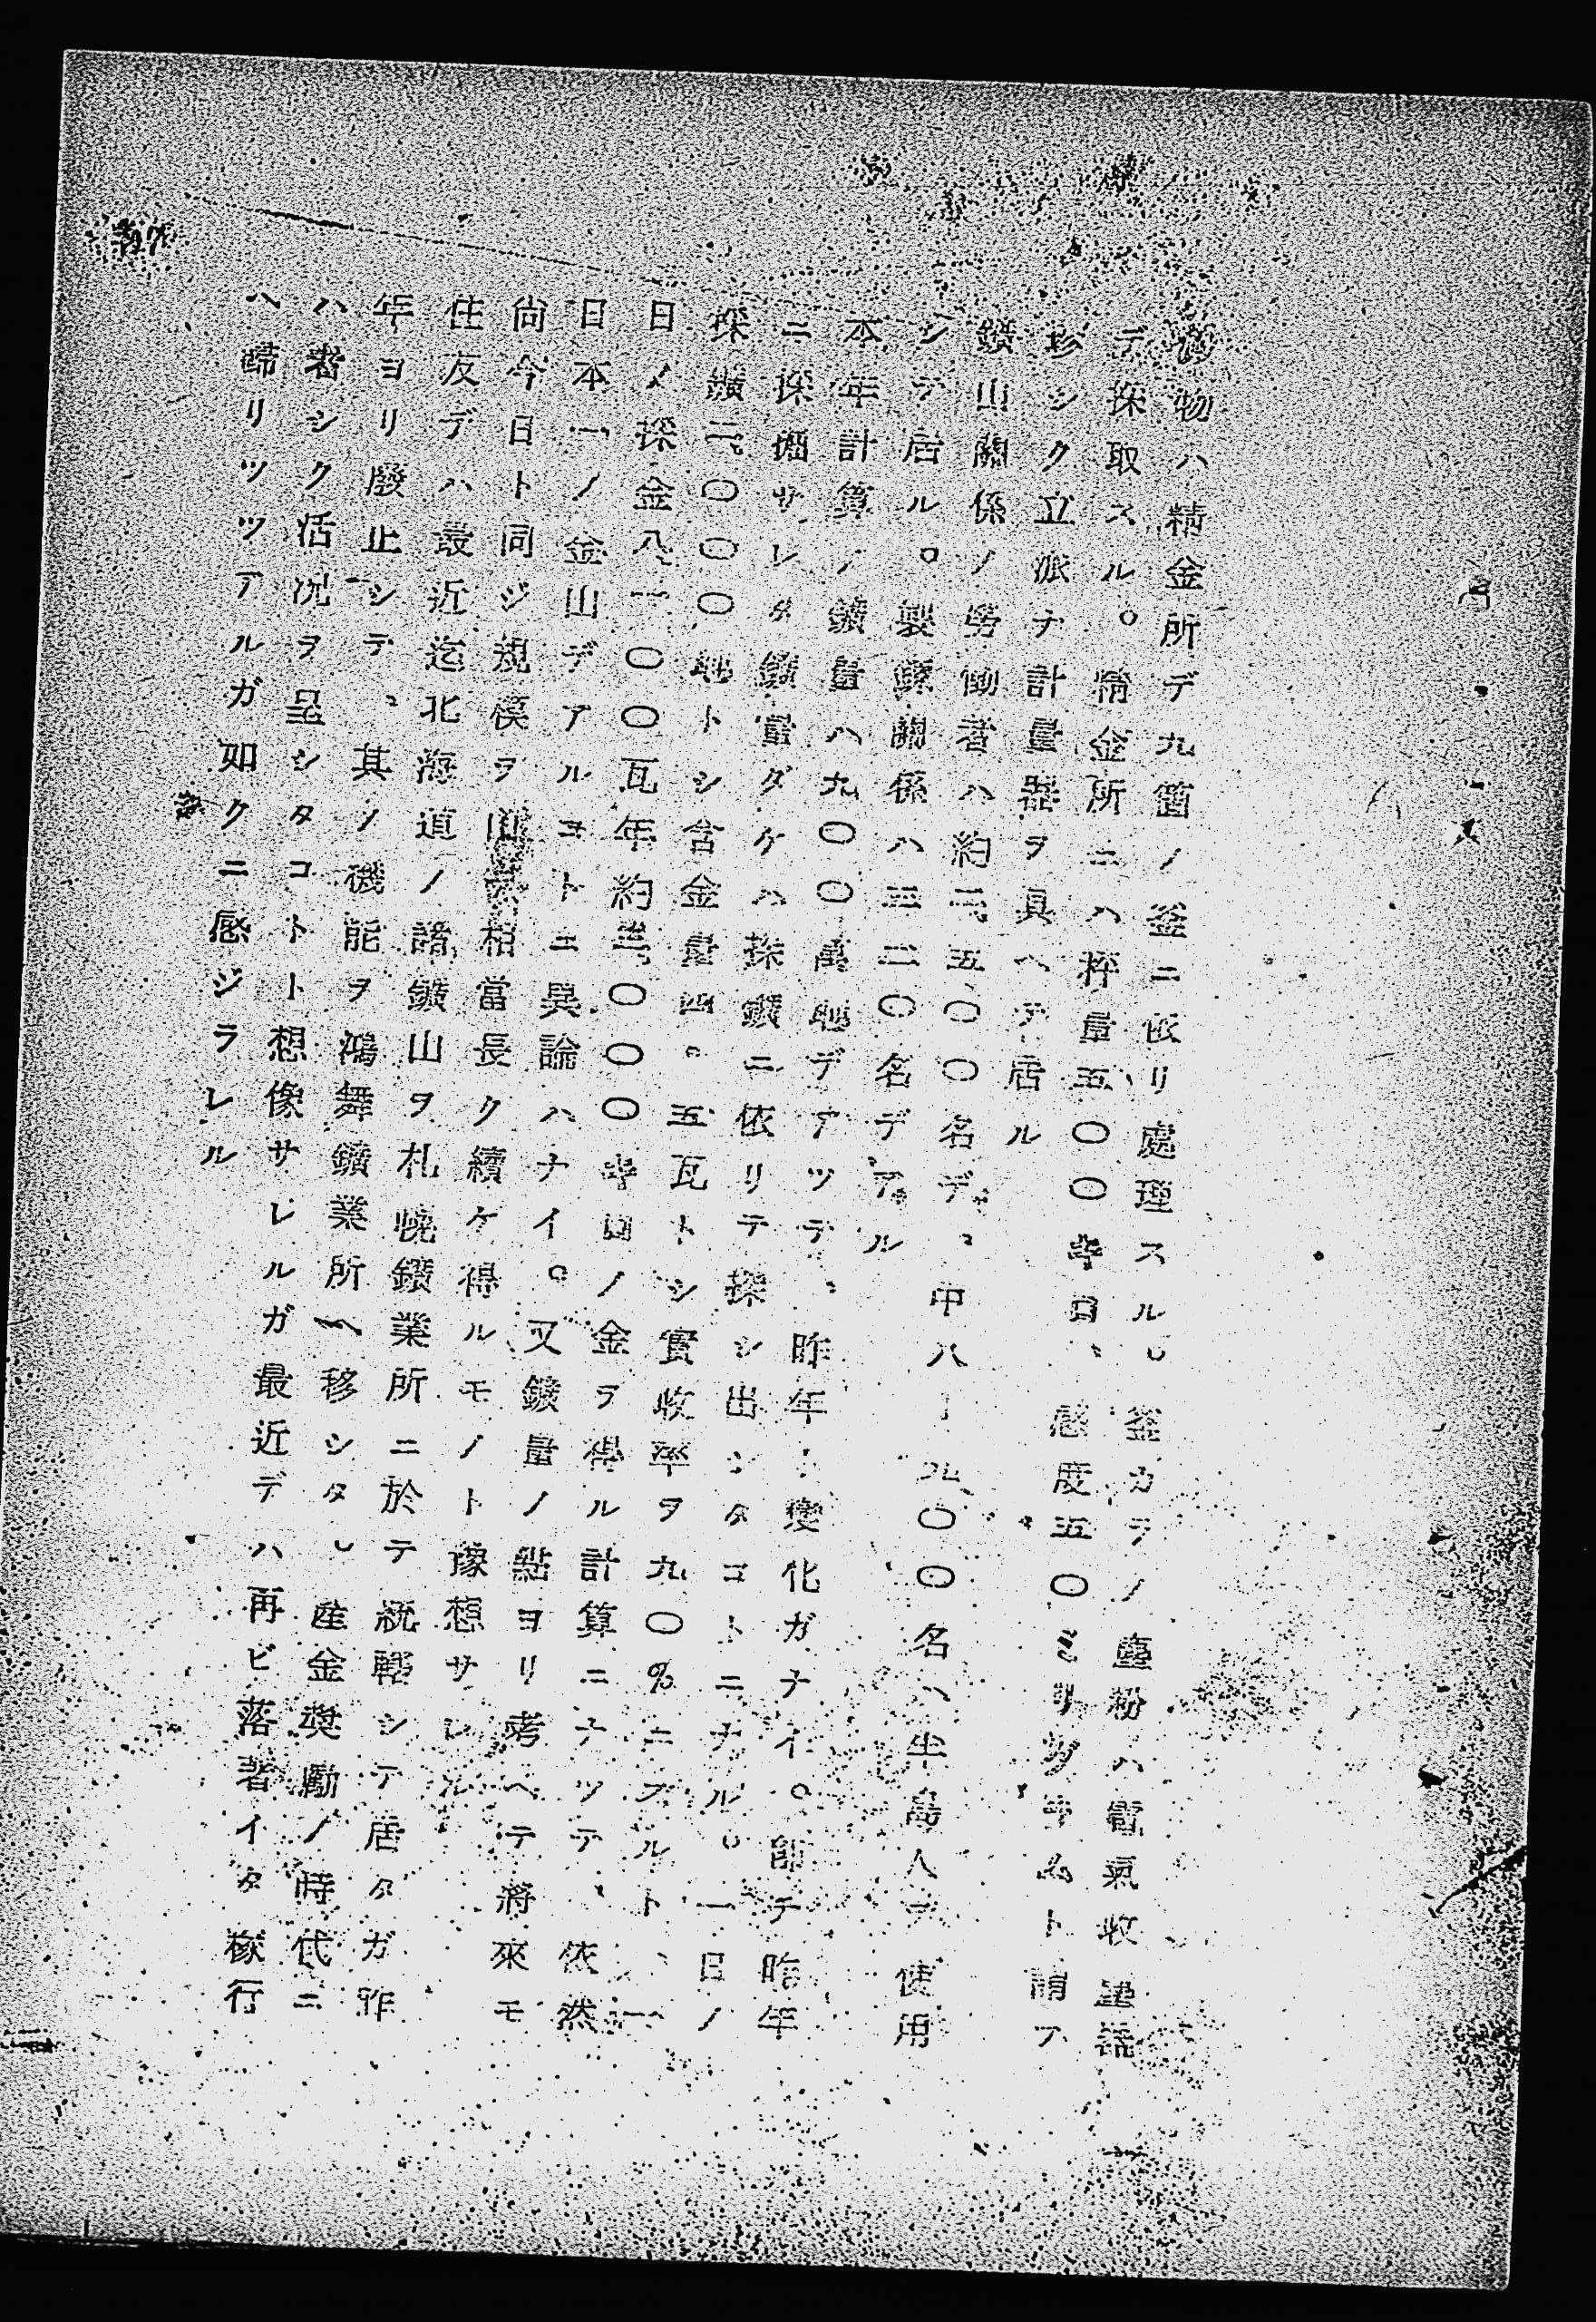 物ハ精金所デ九箇ノ釜ニ依リ處理スル。釜カラノ塵粉ハ電氣收塵器
デ採取スル。精金所ニハ秤量五〇〇キロ、感度五〇ミリグラムト謂フ
珍シク立派ナ計量器ヲ具ヘテ居ル
鑛山關係ノ勞働者ハ約二、五〇〇名デ、中八―九〇〇名ハ半島人ヲ使用
シテ居ル。製錬關係ハ三二〇名デアル
本年計算ノ鑛量ハ九〇〇萬瓲デアツテ、昨年ト變化ガナイ。卽チ昨年
ニ採掘サレタ鑛量ダケハ探鑛ニ依リテ探シ出シタコトニナル。一日ノ
採鑛二、〇〇〇瓲トシ含金量四。五瓦トシ實收率ヲ九〇%ニスルト、一
日ノ採金八、一〇〇瓦年約三、〇〇〇キロノ金ヲ得ル計算ニナツテ、依然
日本一ノ金山デアルコトニ異論ハナイ。又鑛量ノ點ヨリ考ヘテ將來モ
尙今日ト同ジ規模ヲ以テ相當長ク續ケ得ルモノト豫想サレル
住友デハ最近迄北海道ノ諸鑛山ヲ札幌鑛業所ニ於テ統轄シテ居タガ昨
年ヨリ廢止シテ、其ノ機能ヲ鴻舞鑛業所ヘ移シタ。產金奬勵ノ時代ニ
ハ著シク活況ヲ呈シタコトト想像サレルガ最近デハ再ビ落着イタ稼行
ヘ歸リツツアルガ如クニ感ジラレル